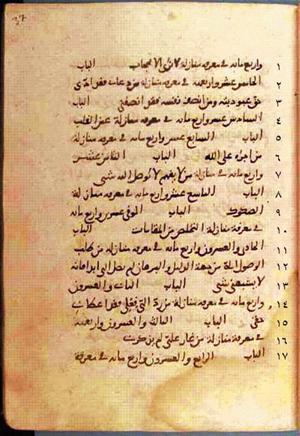 1 واربع مائة في معرفة منازلة لا ترى الا بحجاب الباب
2 الخامس عشر واربعمئة في معرفة منازلة من دعاني فقد ادى
3 حق عبوديته ومن انصف نفسه فقد انصفني الباب
4 السادس عشر واربع مائة في معرفة منازلة عين القلب
5 الباب السابع عشر واربع مائة في معرفة منازلة
6 من اجره على الله الباب الثامن عشر
7 واربع مائة في معرفة منازلة من لا يفهم لا يوصل اليه شي
8 الباب التاسع عشر واربع مائة في معرفة منازلة
9 الصكوك الباب الموفي عشرين واربع مائة
10 في معرفة منازلة التخلص من المقامات الباب
11 الحادي والعشرون واربع مائة في معرفة منازلة من طلب
12 الوصول الي من جهة الدليل والبرهان لم يصل الي ابدا فانه
13 لا يشبهني شي الباب الثاني والعشرون
14 واربع مائة في معرفة منازلة من رد الي فعلي فقد اعطاني
15 حقي الباب الثالث والعشرون واربعمئة
16 في معرفة منازلة من غار علي لم يذكرني
17 الباب الرابع والعشرون واربع مائة في معرفة